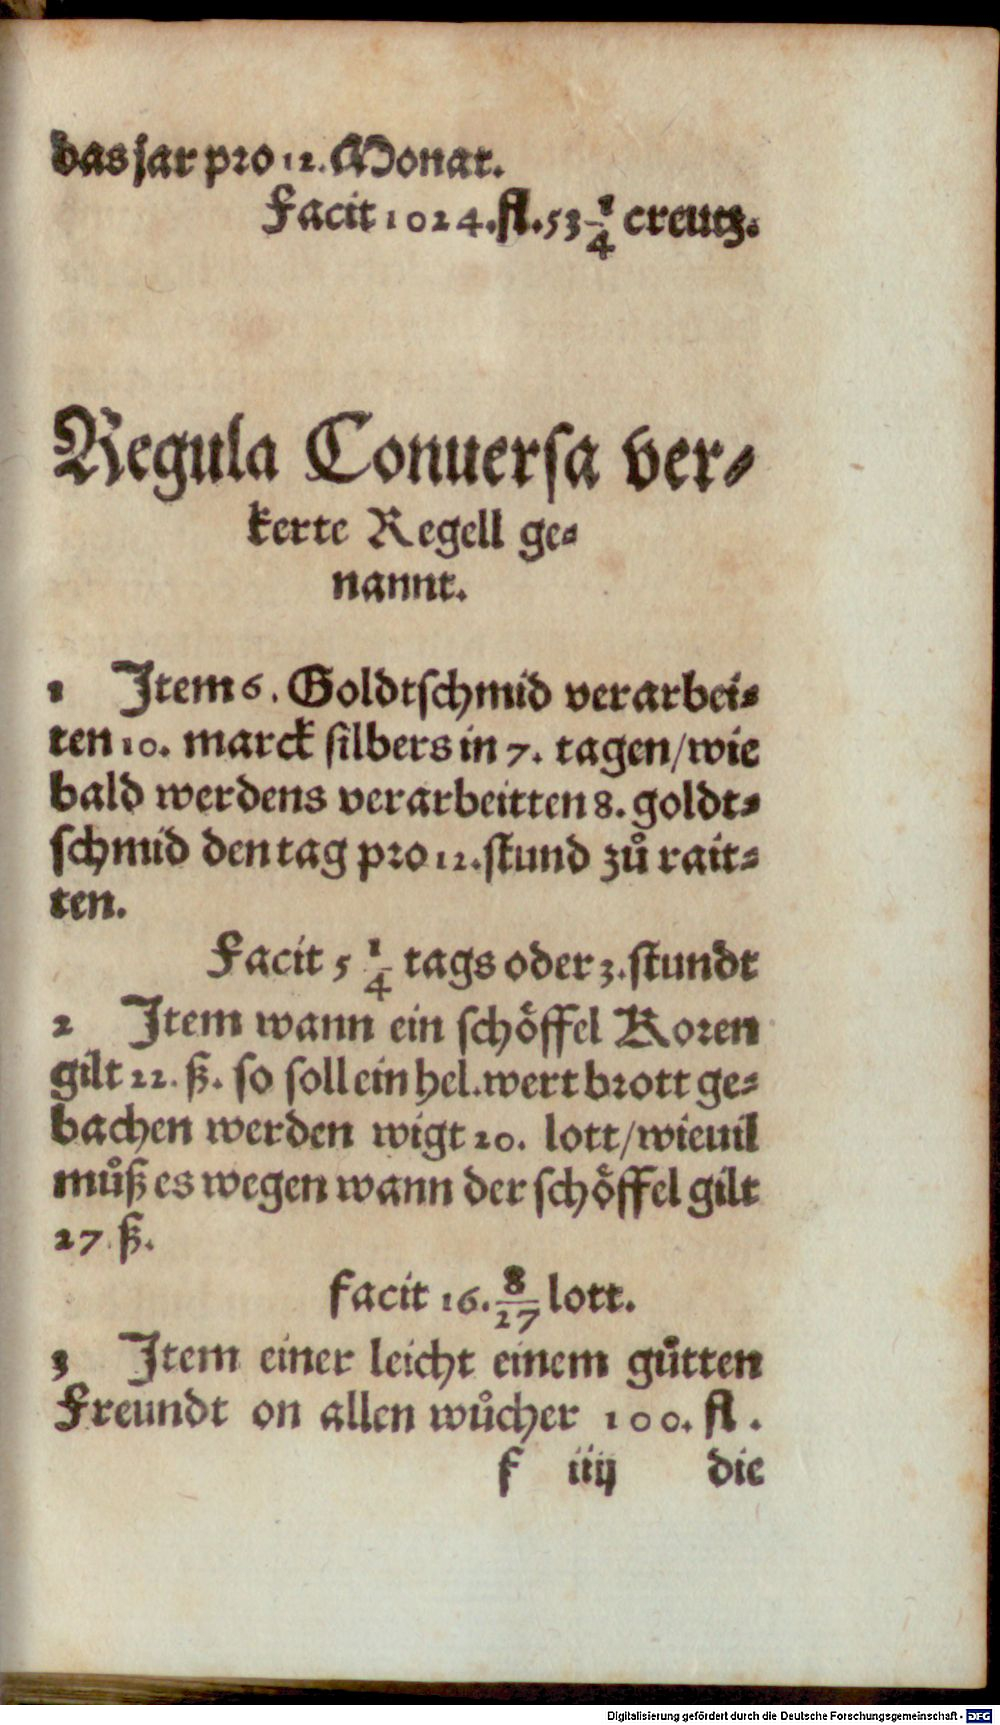 das jar pro 12. Monat.
Facit 1024. fl. 53 1/4 creutz.
Regula Conuersa ver⸗
kerte Regell ge⸗
nannt.
1 Item 6. Goldtschmid verarbei⸗
ten 10. marck silbers in 7. tagen/wie
bald werdens verarbeitten 8. goldt⸗
schmid den tag pro 12. stund zů rait⸗
ten.
Facit 5 1/4 tags oder 3. stundt
2 Item wann ein schöffel Koren
gilt 22. ß. so soll ein hel. wert brott ge⸗
bachen werden wigt 20. lott/wieuil
můß es wegen wann der schöffel gilt
27 ß.
facit 16. 8/27 lott.
3 Item einer leicht einem gůtten
Freundt on allen wůcher 100. fl.
f iiij die
Digitalisierung gefördert durch die Deutsche Forschungsgemeinschaft - DFG